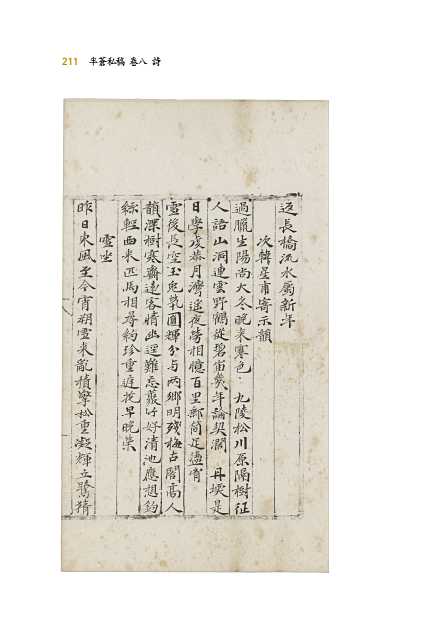 211 半蒼私稿 卷八 詩
返長橋流水屬新年
次韓星甫寄示韻
過臘生陽尚大冬晚來寒色 九陵松川原隔樹征
人語山洞連雲野鶴從碧宙幾年論契濶 丹埃是
日學虔恭月濟遙夜勞相憶百里郵筒足盪胷
雪後長空玉兎乳圓輝分与兩鄉明殘梅古閣高人
韻深樹寒齋遠客情幽逕難忘叢竹好清池應想釣
綠輕西來匹馬相尋約珍重遲挽早晚榮
雪坐
昨日東風至今宵朔雪來亂積擎松重凝輝立鷺猜